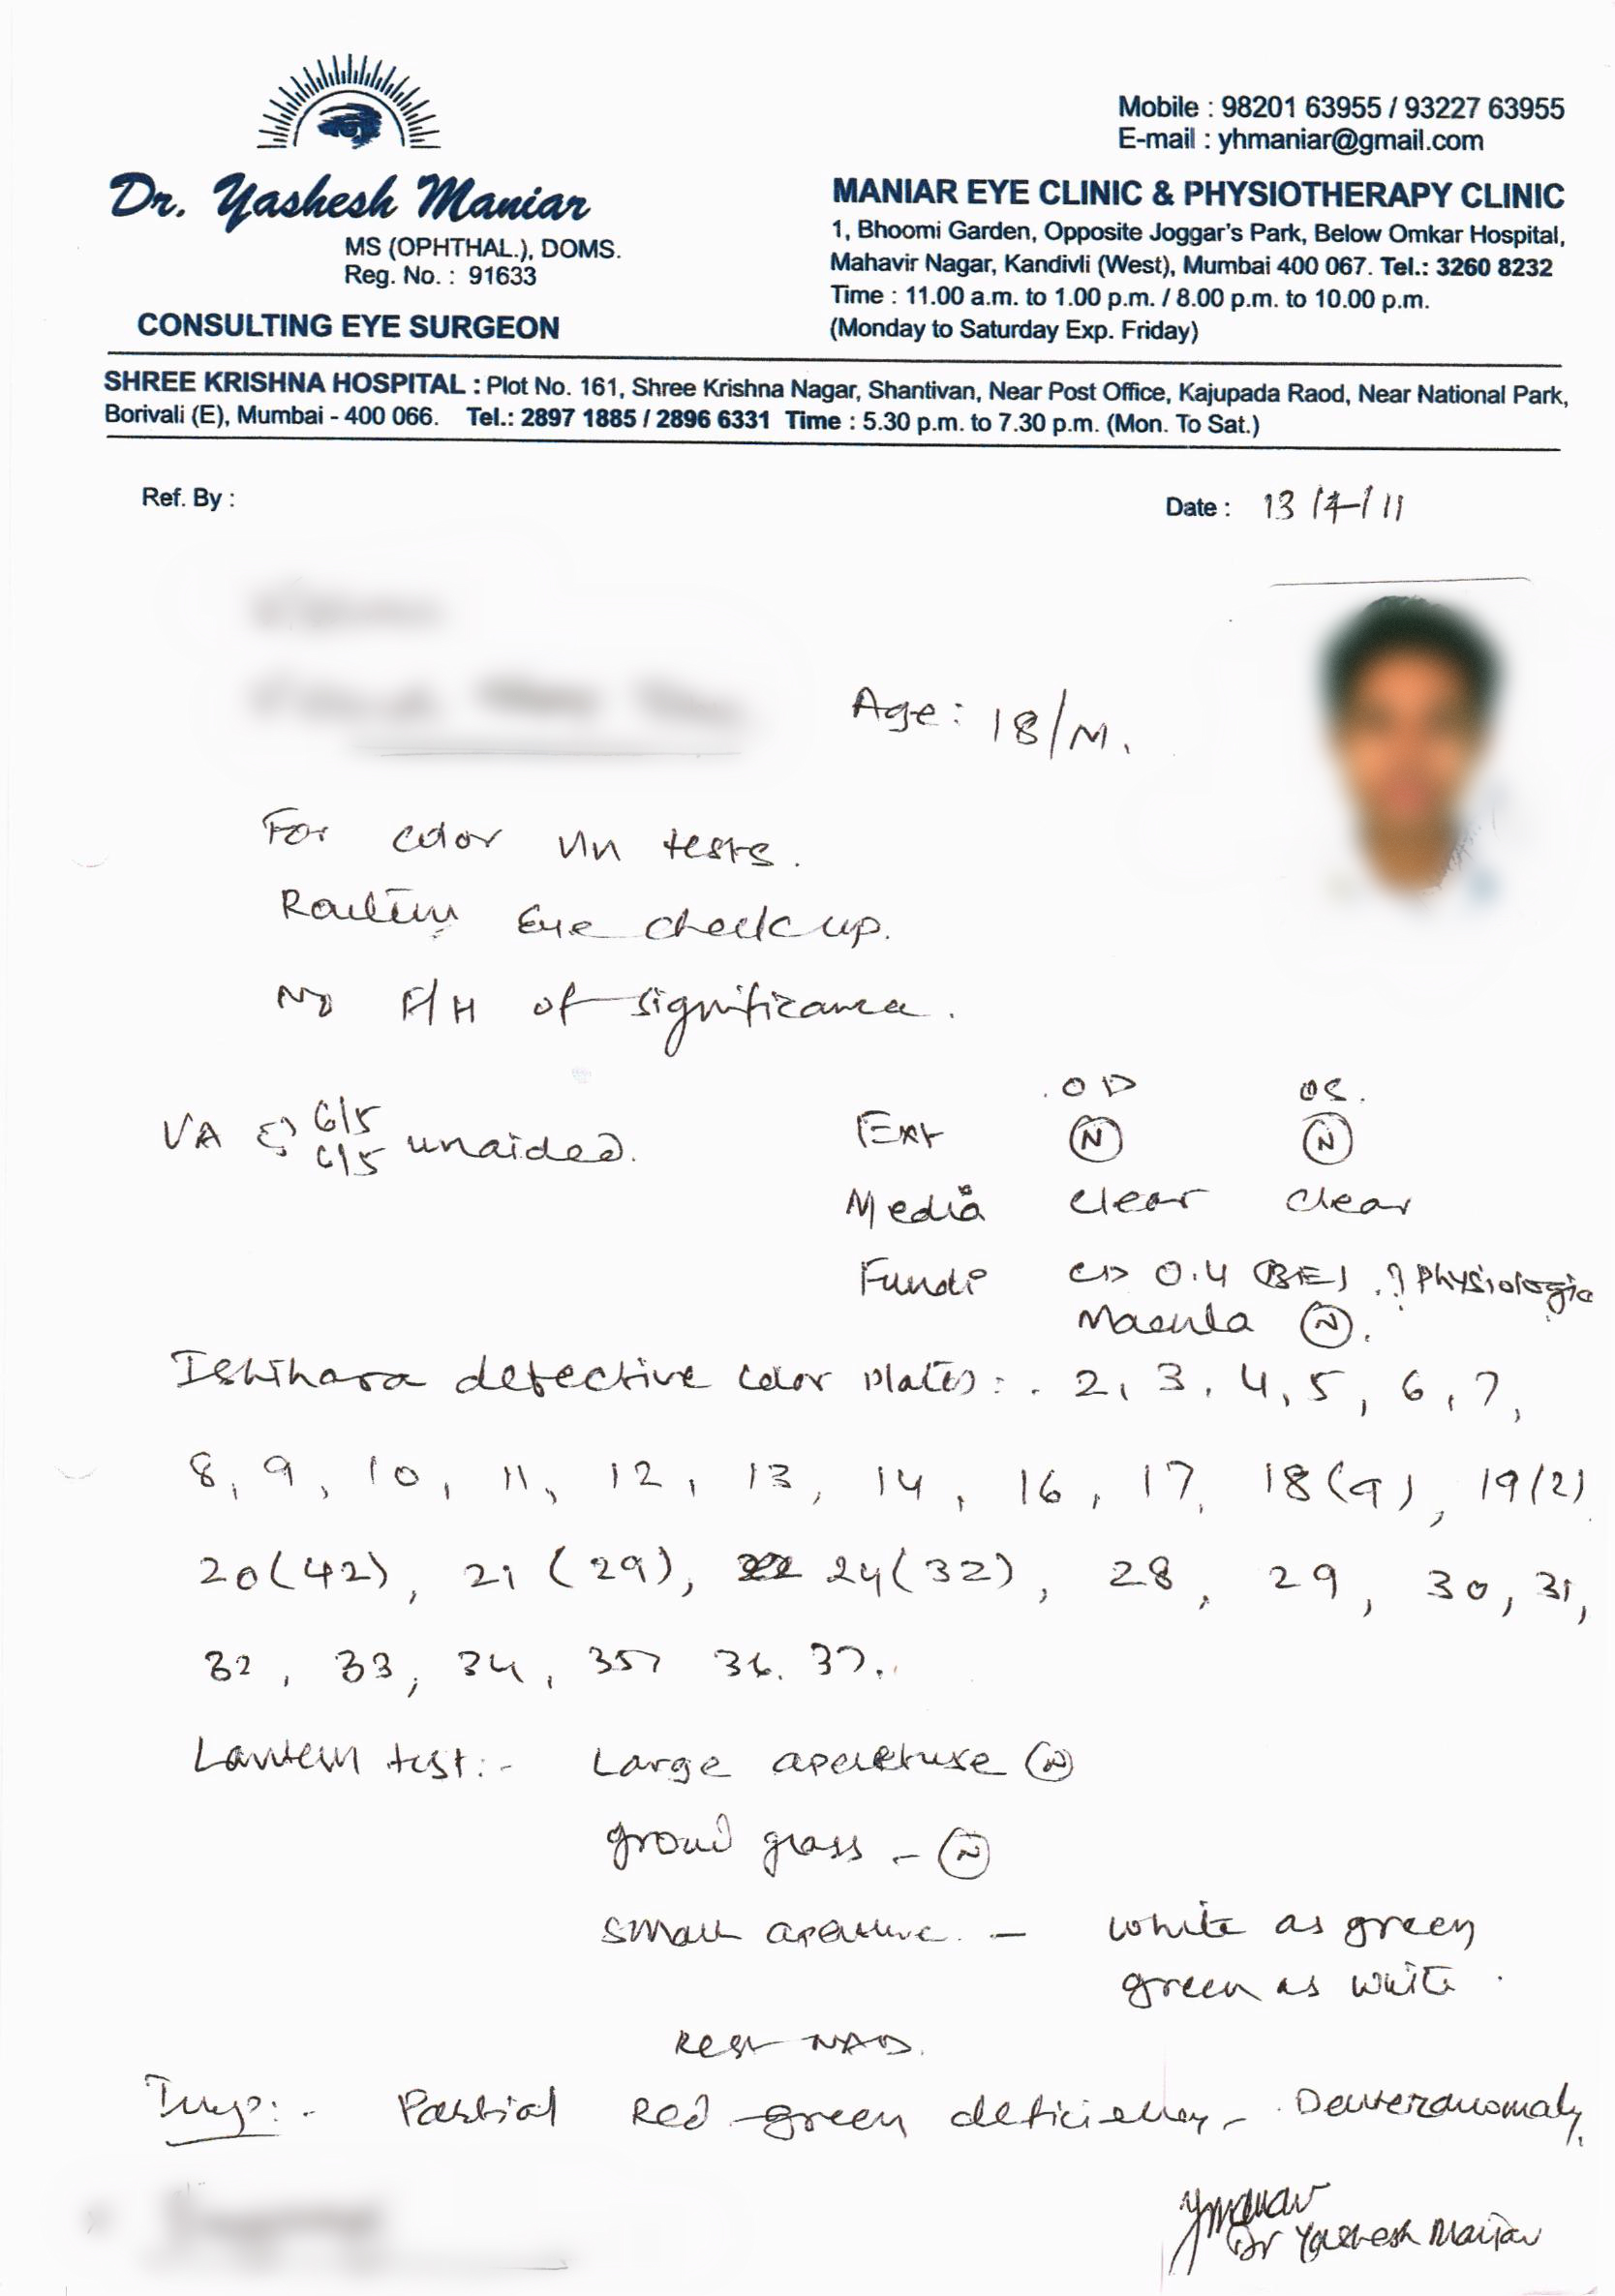 Dr. Yashesh Maniar
MS (OPHTHAL.), DOMS.
Reg. No. : 91633
CONSULTING EYE SURGEON
Mobile : 98201 63955 / 93227 63955
E-mail : yhmaniar@gmail.com
MANIAR EYE CLINIC & PHYSIOTHERAPY CLINIC
1, Bhoomi Garden, Opposite Joggar's Park, Below Omkar Hospital,
Mahavir Nagar, Kandivli (West), Mumbai 400 067. Tel.: 3260 8232
Time : 11.00 a.m. to 1.00 p.m. / 8.00 p.m. to 10.00 p.m.
(Monday to Saturday Exp. Friday)
SHREE KRISHNA HOSPITAL : Plot No. 161, Shree Krishna Nagar, Shantivan, Near Post Office, Kajupada Raod, Near National Park,
Borivali (E), Mumbai - 400 066. Tel.: 2897 1885 / 2896 6331 Time : 5.30 p.m. to 7.30 p.m. (Mon. To Sat.)
Ref. By :
Date : 13/7/11
Age: 18/M.
For color Vn tests.
Routine Eye check up.
No F/H of significance.
VA 6/5 6/5 unaided.
OD OS.
Ext N N
Media clear clear
Fundi CD 0.4 (BE) ? Physiologic
Macula N.
Ishihara defective color plates: 2, 3, 4, 5, 6, 7,
8, 9, 10, 11, 12, 13, 14, 16, 17, 18(9), 19(2)
20(42), 21(29), 24(32), 28, 29, 30, 31,
32, 33, 34, 35, 36, 37.
Lantern test:- Large aperture N
ground glass - N
small aperture - white as green
green as white.
Rest NAD.
Imp:- Partial Red-green deficiency - Deuteranomaly.
Dr Yashesh Maniar